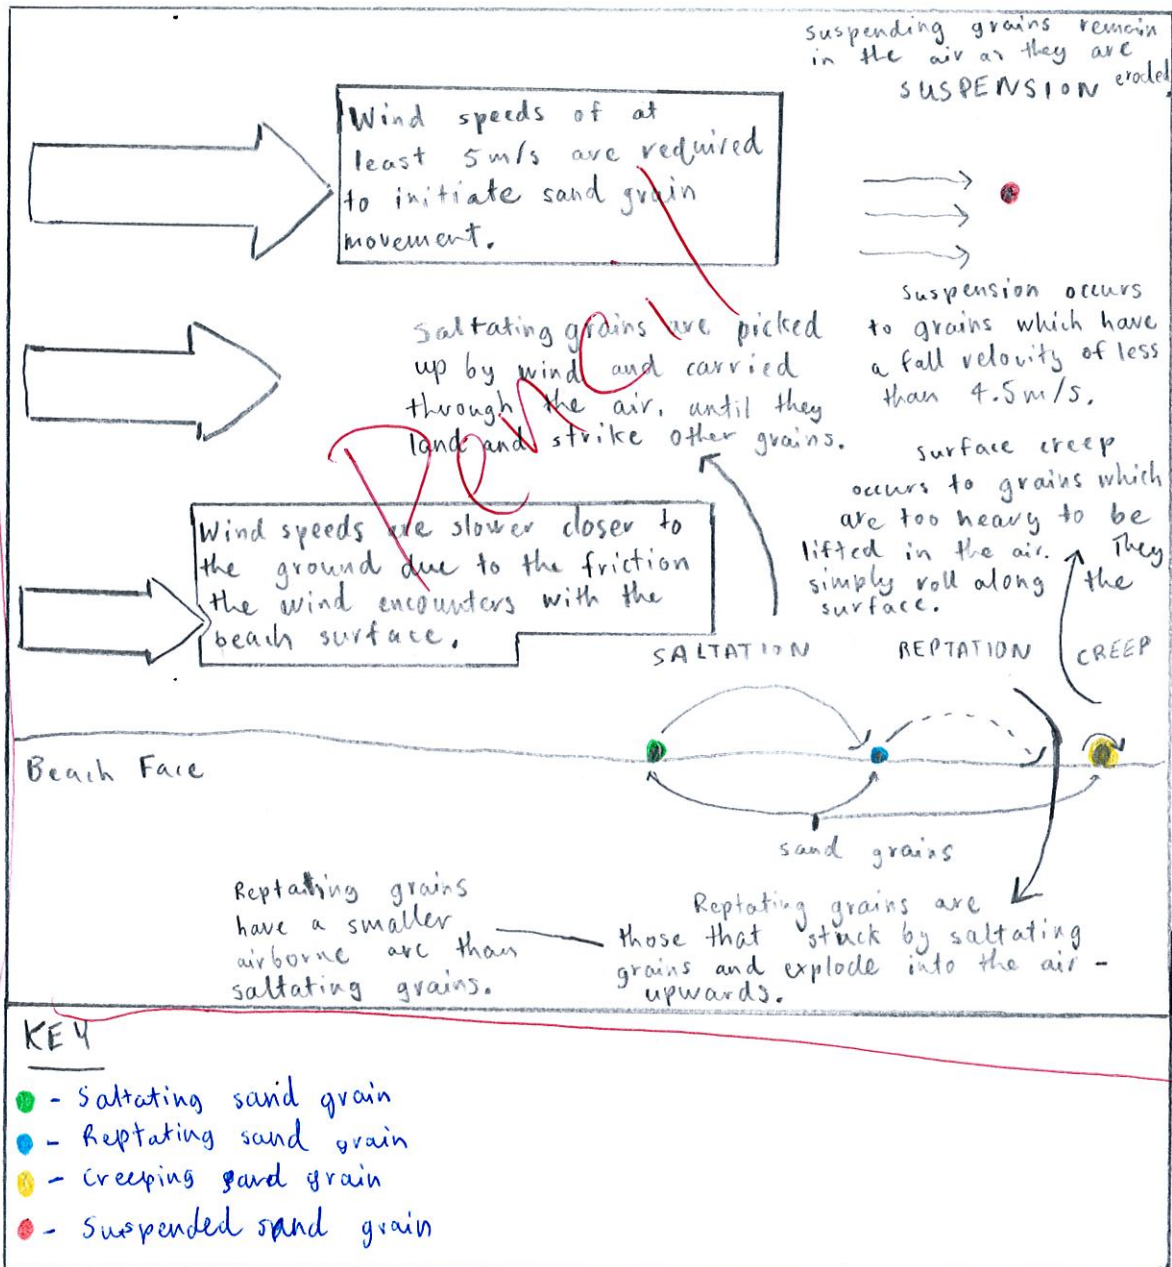 suspending grains remain
in the air as they are
eroded.
SUSPENSION
Wind speeds of at
least 5m/s are required
to initiate sand grain
movement.
Suspension occurs
to grains which have
a fall velocity of less
than 4.5m/s.
Saltating grains are picked
up by wind and carried
through the air, until they
land and strike other grains.
Pencil
surface creep
occurs to grains which
are too heavy to be
lifted in the air. They
simply roll along the
surface.
Wind speeds are slower closer to
the ground due to the friction
the wind encounters with the
beach surface.
SALTATION
REPTATION
CREEP
Beach Face
sand grains
Reptating grains
have a smaller
airborne arc than
saltating grains.
Reptating grains are
those that stuck by saltating
grains and explode into the air -
upwards.
KEY
- Saltating sand grain
- Reptating sand grain
- Creeping sand grain
- Suspended sand grain